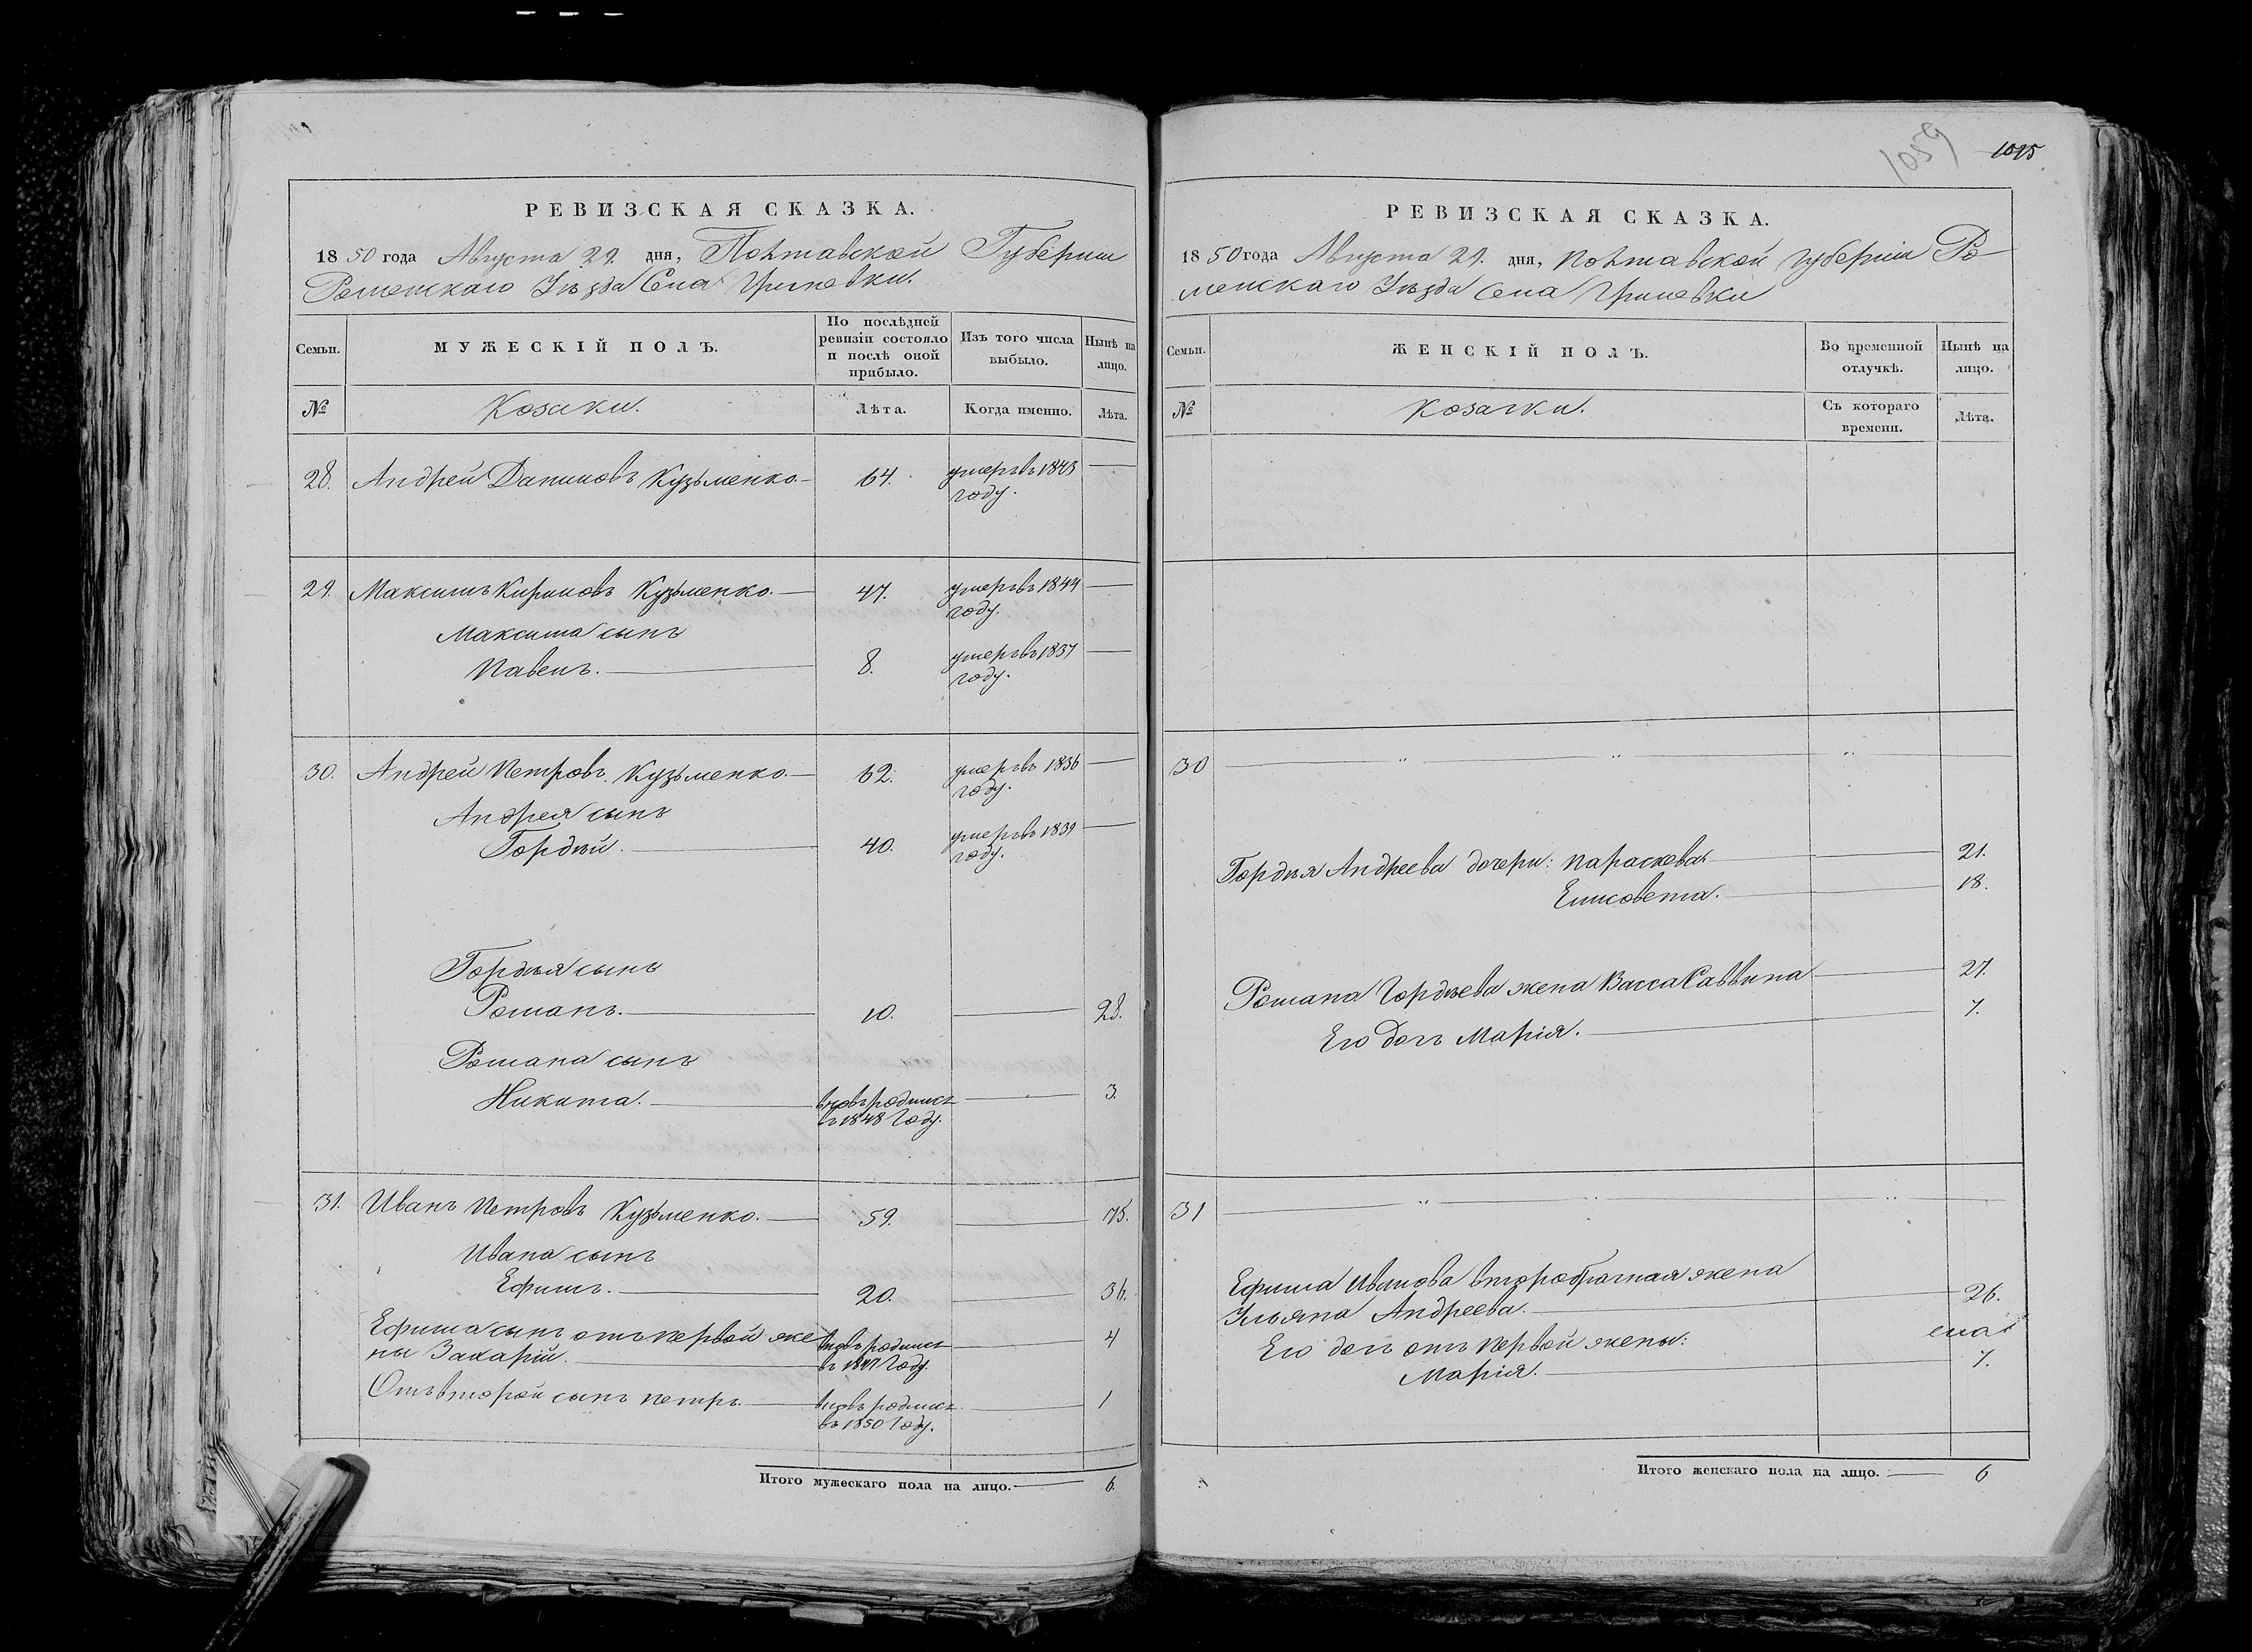 РЕВИЗСКАЯ СКАЗКА.
1850 года Августа 29. дня, Полтавской Губерніи
Роменскаго Уѣзда Села Гриневки.
Семьи.
МУЖЕСКІЙ ПОЛЪ.
По послѣдней
ревизіи состояло
и послѣ оной
прибыло.
Изъ того числа
выбыло.
Нынѣ на
лицо.
№
Козаки.
Лѣта.
Когда именно.
Лѣта.
28. Андрей Даниловъ Кузьменко 64. умеръ въ 1843
году.
29. Максимъ Кириловъ Кузьменко. 47. умеръ въ 1844
году.
Максима сынъ
Павелъ. 8. умеръ въ 1837
году.
30. Андрей Петровъ Кузьменко 62. умеръ въ 1836
году.
Андрея сынъ
Гордѣй. 40. умеръ въ 1839
году.
Гордѣя сынъ
Романъ. 10. 28.
Романа сынъ
Никита. вновь родился 3.
въ 1848 году.
31. Иванъ Петровъ Кузьменко. 59. 75.
Ивана сынъ
Ефимъ. 20. 36.
Ефима сынъ отъ первой же вновь родился 4
ны Захарій. въ 1847 году.
Отъ второй сынъ Петръ. вновь родился 1
въ 1850 году.
Итого мужескаго пола на лицо. 6.
1059
1015
РЕВИЗСКАЯ СКАЗКА.
1850 года Августа 29. дня, Полтавской Губерніи Ро-
менскаго Уѣзда Села Гриневки
Семьи.
ЖЕНСКІЙ ПОЛЪ.
Во временной
отлучкѣ.
Нынѣ на
лицо.
№
Козачки.
Съ котораго
времени.
Лѣта.
30
Гордѣя Андреева дочери: Параскева 21.
Елисовета. 18.
Романа Гордѣева жена Васса Саввина 27.
Его дочь Марія. 7.
31
Ефима Иванова второбрачная жена
Ульяна Андреева. 26.
Его дочь отъ первой жены:
Марія. 7.
Итого женскаго пола на лицо. 6